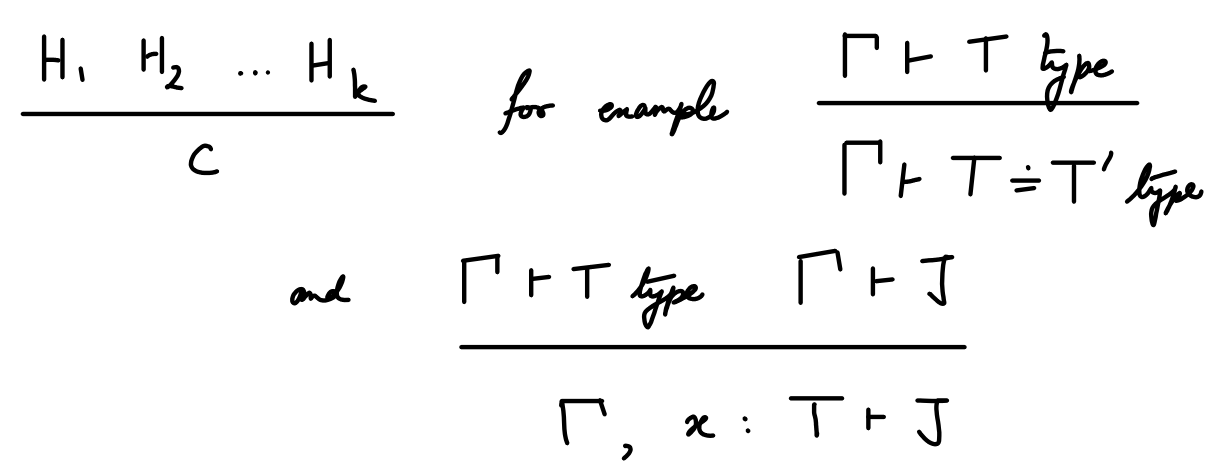 H₁ H₂ ... Hₖ for example Γ ⊢ T type
C Γ ⊢ T ≐ T′ type
and Γ ⊢ T type Γ ⊢ J
Γ, x : T ⊢ J